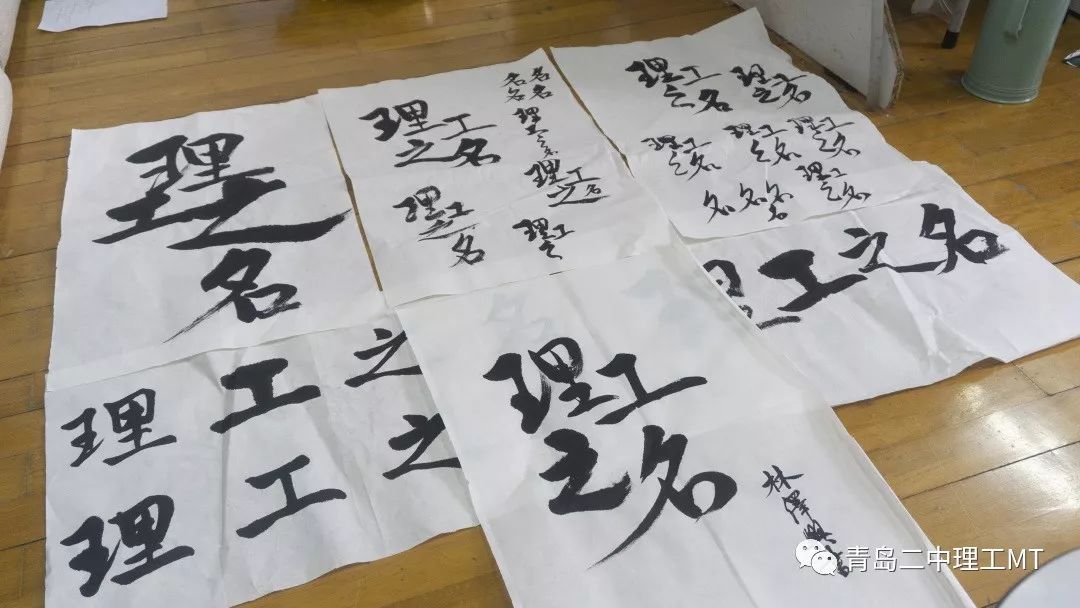 理
工之
名
理工
之名
名名
名名
理
工
之
名
理工
之名
理工
之
名
理工
之
理工
之名
理工
之名
理工
之名
理工
之名
理工
之名
名名名
理工
之名
理工之名
理工之
理工之
理工
之名
林澤
青岛二中理工MT